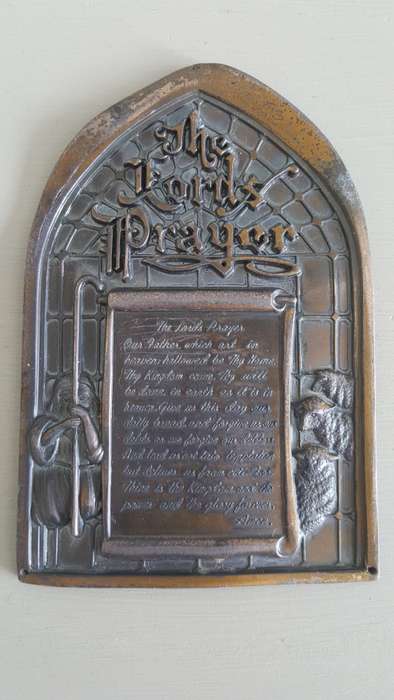 The
Lords'
Prayer
The Lord's Prayer
Our Father which art in
heaven hallowed be Thy Name,
Thy Kingdom come Thy will
be done in earth as it is in
heaven. Give us this day our
daily bread and forgive us our
debts as we forgive our debtors
And lead us not into temptation
but deliver us from evil. For
Thine is the Kingdom and the
power and the glory forever.
Amen.